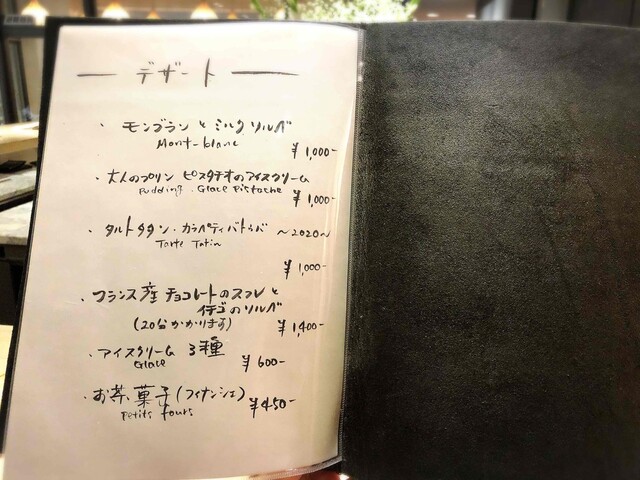 デザート
・モンブランとミルクソルベ
Mont-blanc
¥1,000-
・大人のプリン ピスタチオのアイスクリーム
Pudding. Glace Pistache
¥1,000-
・タルトタタン・カラペティバトゥバ ~2020~
Tarte Tatin
¥1,000-
・フランス産チョコレートのスフレと
イチゴのソルベ
(20分かかります) ¥1,400-
・アイスクリーム 3種
Glace ¥600-
・お茶菓子(フィナンシェ)
Petits fours ¥450-